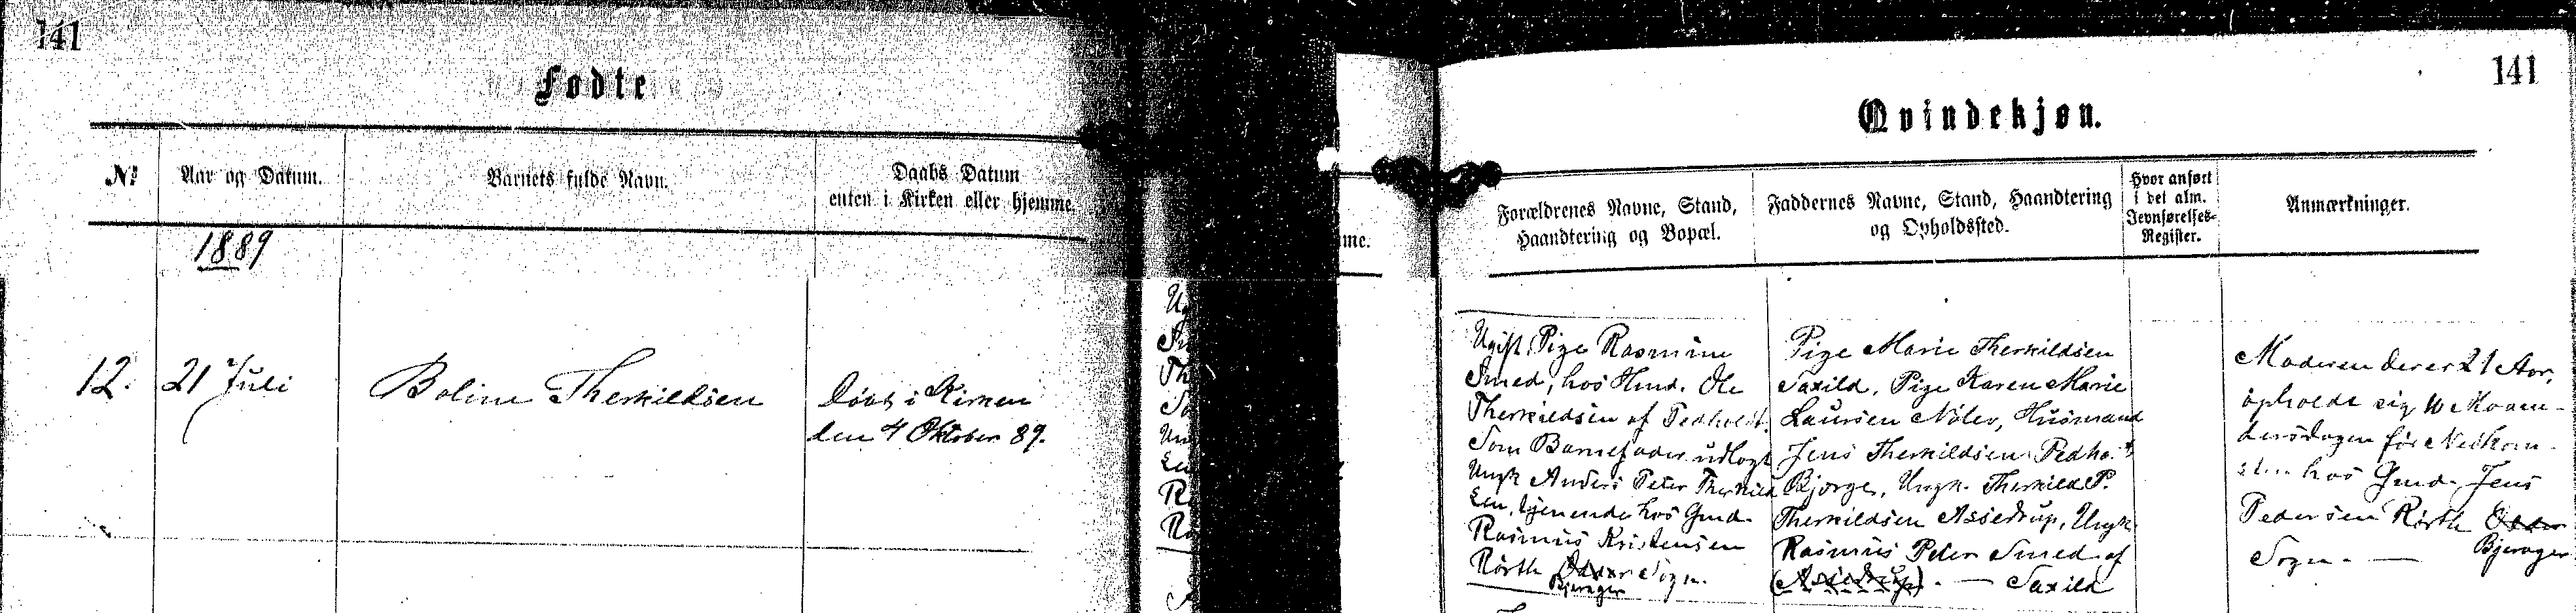 141
Fødte
Nº
Aar og Datum.
Barnets fulde Navn.
Daabs Datum
enten i Kirken eller hjemme.
1889
12.
21 Juli
Boline Therkildsen
Døbt i Kirken
den 4 Oktober 89.
me.
141
Qvindekjøn.
Forældrenes Navne, Stand,
Haandtering og Bopæl.
Faddernes Navne, Stand, Haandtering
og Opholdssted.
Hvor anført
i det alm.
Jevnførelses-
Register.
Anmærkninger.
Ugift Pige Rasmine
Smed, hos Hmd. Ole
Therkildsen af Pedholt.
Som Barnefader udlagt
Ungk Anders Peter Therkild
sen, tjenende hos Gmd.
Rasmus Kristensen
Rørth Odder Sogn.
Bjerager
Pige Marie Therkildsen
Saxild, Pige Karen Marie
Laursen Nølev, Husmand
Jens Therkildsen Pedholt
Bjerge, Ungk. Therkild P.
Therkildsen Assedrup, Ungk
Rasmus Peter Smed af
(Assedrup). — Saxild
Moderen der er 21 Aar,
opholdt sig 10 Maaneds-
dagen før Nedkom-
sten hos Gmd. Jens
Pedersen Rørth Odder
Bjerager
Sogn. —